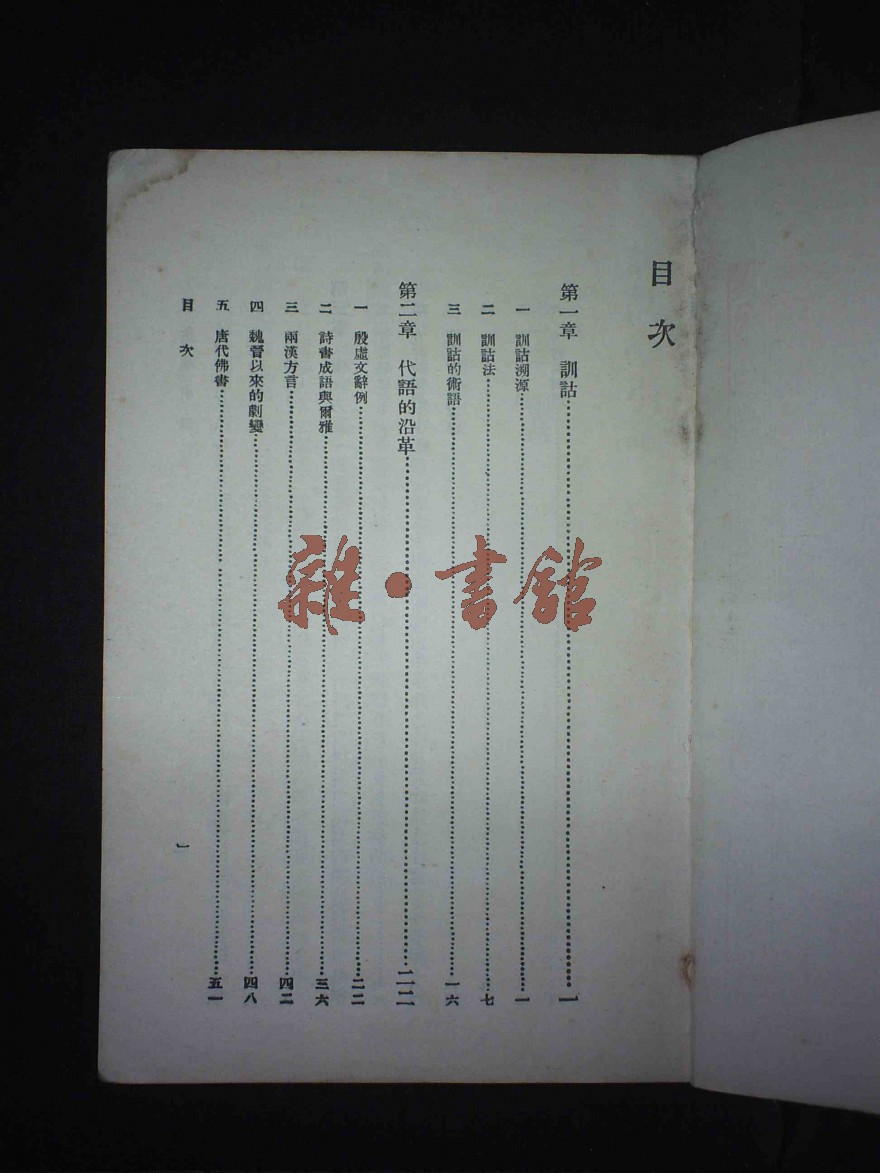 目次
第一章 訓詁……一
一 訓詁溯源……一
二 訓詁法……七
三 訓詁的術語……一六
第二章 代語的沿革……二二
一 殷虛文辭例……二二
二 詩書成語與爾雅……三六
三 兩漢方言……四二
四 魏晉以來的劇變……四八
五 唐代佛書……五一
目次
一
雜·書館